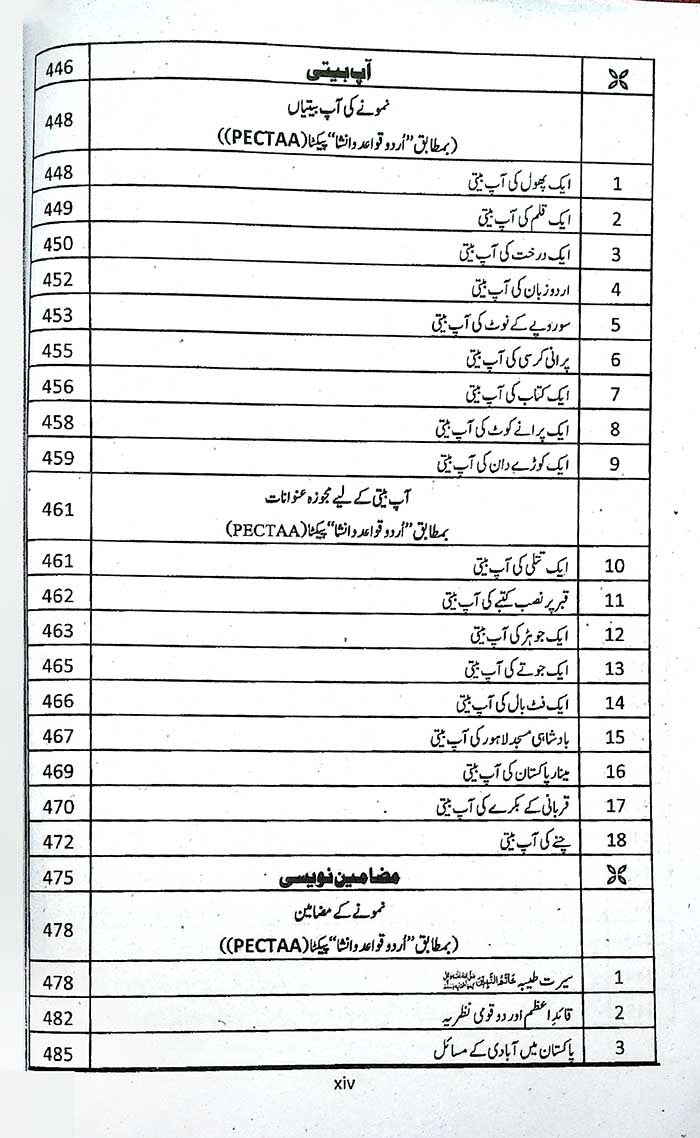 آپ بیتی 446
نمونے کی آپ بیتیاں
(بمطابق ”اُردو قواعد و انشا“ پیکٹا (PECTAA)) 448
1 ایک پھول کی آپ بیتی 448
2 ایک قلم کی آپ بیتی 449
3 ایک درخت کی آپ بیتی 450
4 اردو زبان کی آپ بیتی 452
5 سو روپے کے نوٹ کی آپ بیتی 453
6 پرانی کرسی کی آپ بیتی 455
7 ایک کتاب کی آپ بیتی 456
8 ایک پرانے کوٹ کی آپ بیتی 458
9 ایک کوڑے دان کی آپ بیتی 459
آپ بیتی کے لیے مجوزہ عنوانات
بمطابق ”اُردو قواعد و انشا“ پیکٹا (PECTAA) 461
10 ایک تتلی کی آپ بیتی 461
11 قبر پر نصب کتبے کی آپ بیتی 462
12 ایک جوہڑ کی آپ بیتی 463
13 ایک جوتے کی آپ بیتی 465
14 ایک فٹ بال کی آپ بیتی 466
15 بادشاہی مسجد لاہور کی آپ بیتی 467
16 مینار پاکستان کی آپ بیتی 469
17 قربانی کے بکرے کی آپ بیتی 470
18 چنے کی آپ بیتی 472
مضامین نویسی 475
نمونے کے مضامین
(بمطابق ”اُردو قواعد و انشا“ پیکٹا (PECTAA)) 478
1 سیرت طیبہ خَاتَمُ النَّبِیّٖنَ 478
2 قائدِاعظم اور دو قومی نظریہ 482
3 پاکستان میں آبادی کے مسائل 485
xiv